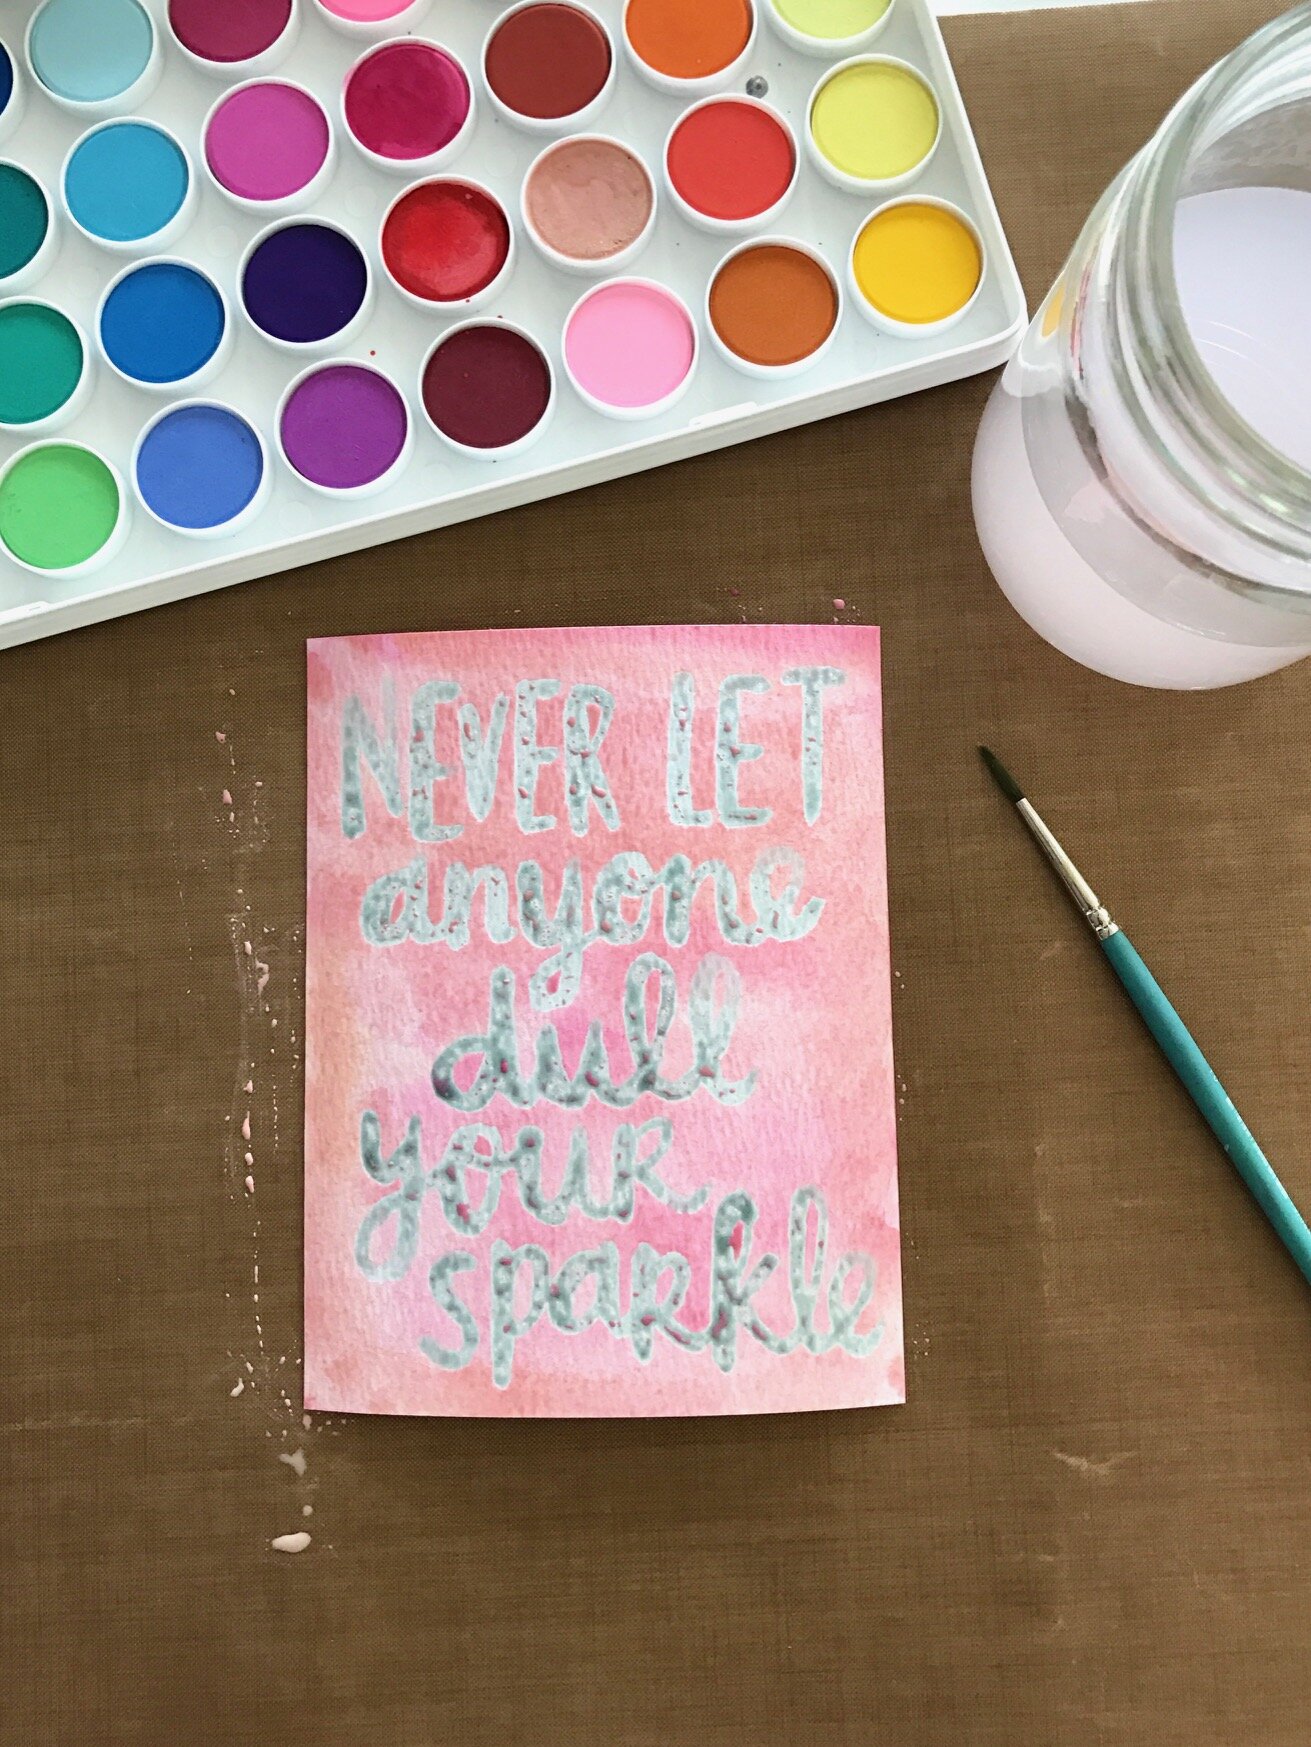 NEVER LET
anyone
dull
youR
sparkle